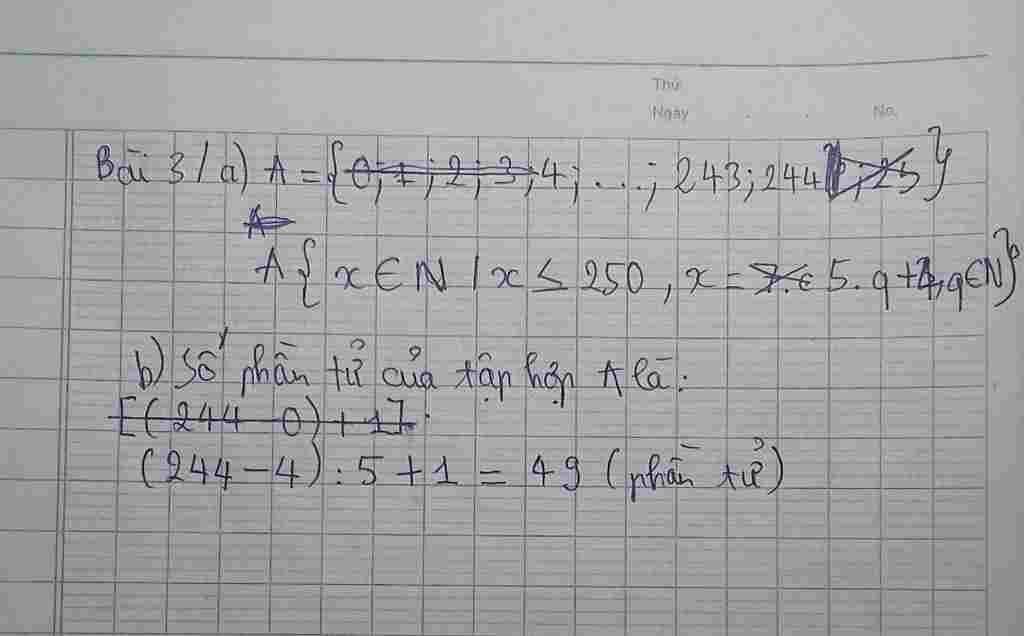 Thứ
Ngày . . No.
Bài 3/a) A = {0; 1; 2; 3; 4; ...; 243; 244; 25}
A =
A{ x ∈ N / x ≤ 250, x = 5. q + 4, q ∈ N}
b) Số phần tử của tập hợp A là:
[(244 - 0) + 1].
(244 - 4) : 5 + 1 = 49 (phần tử)